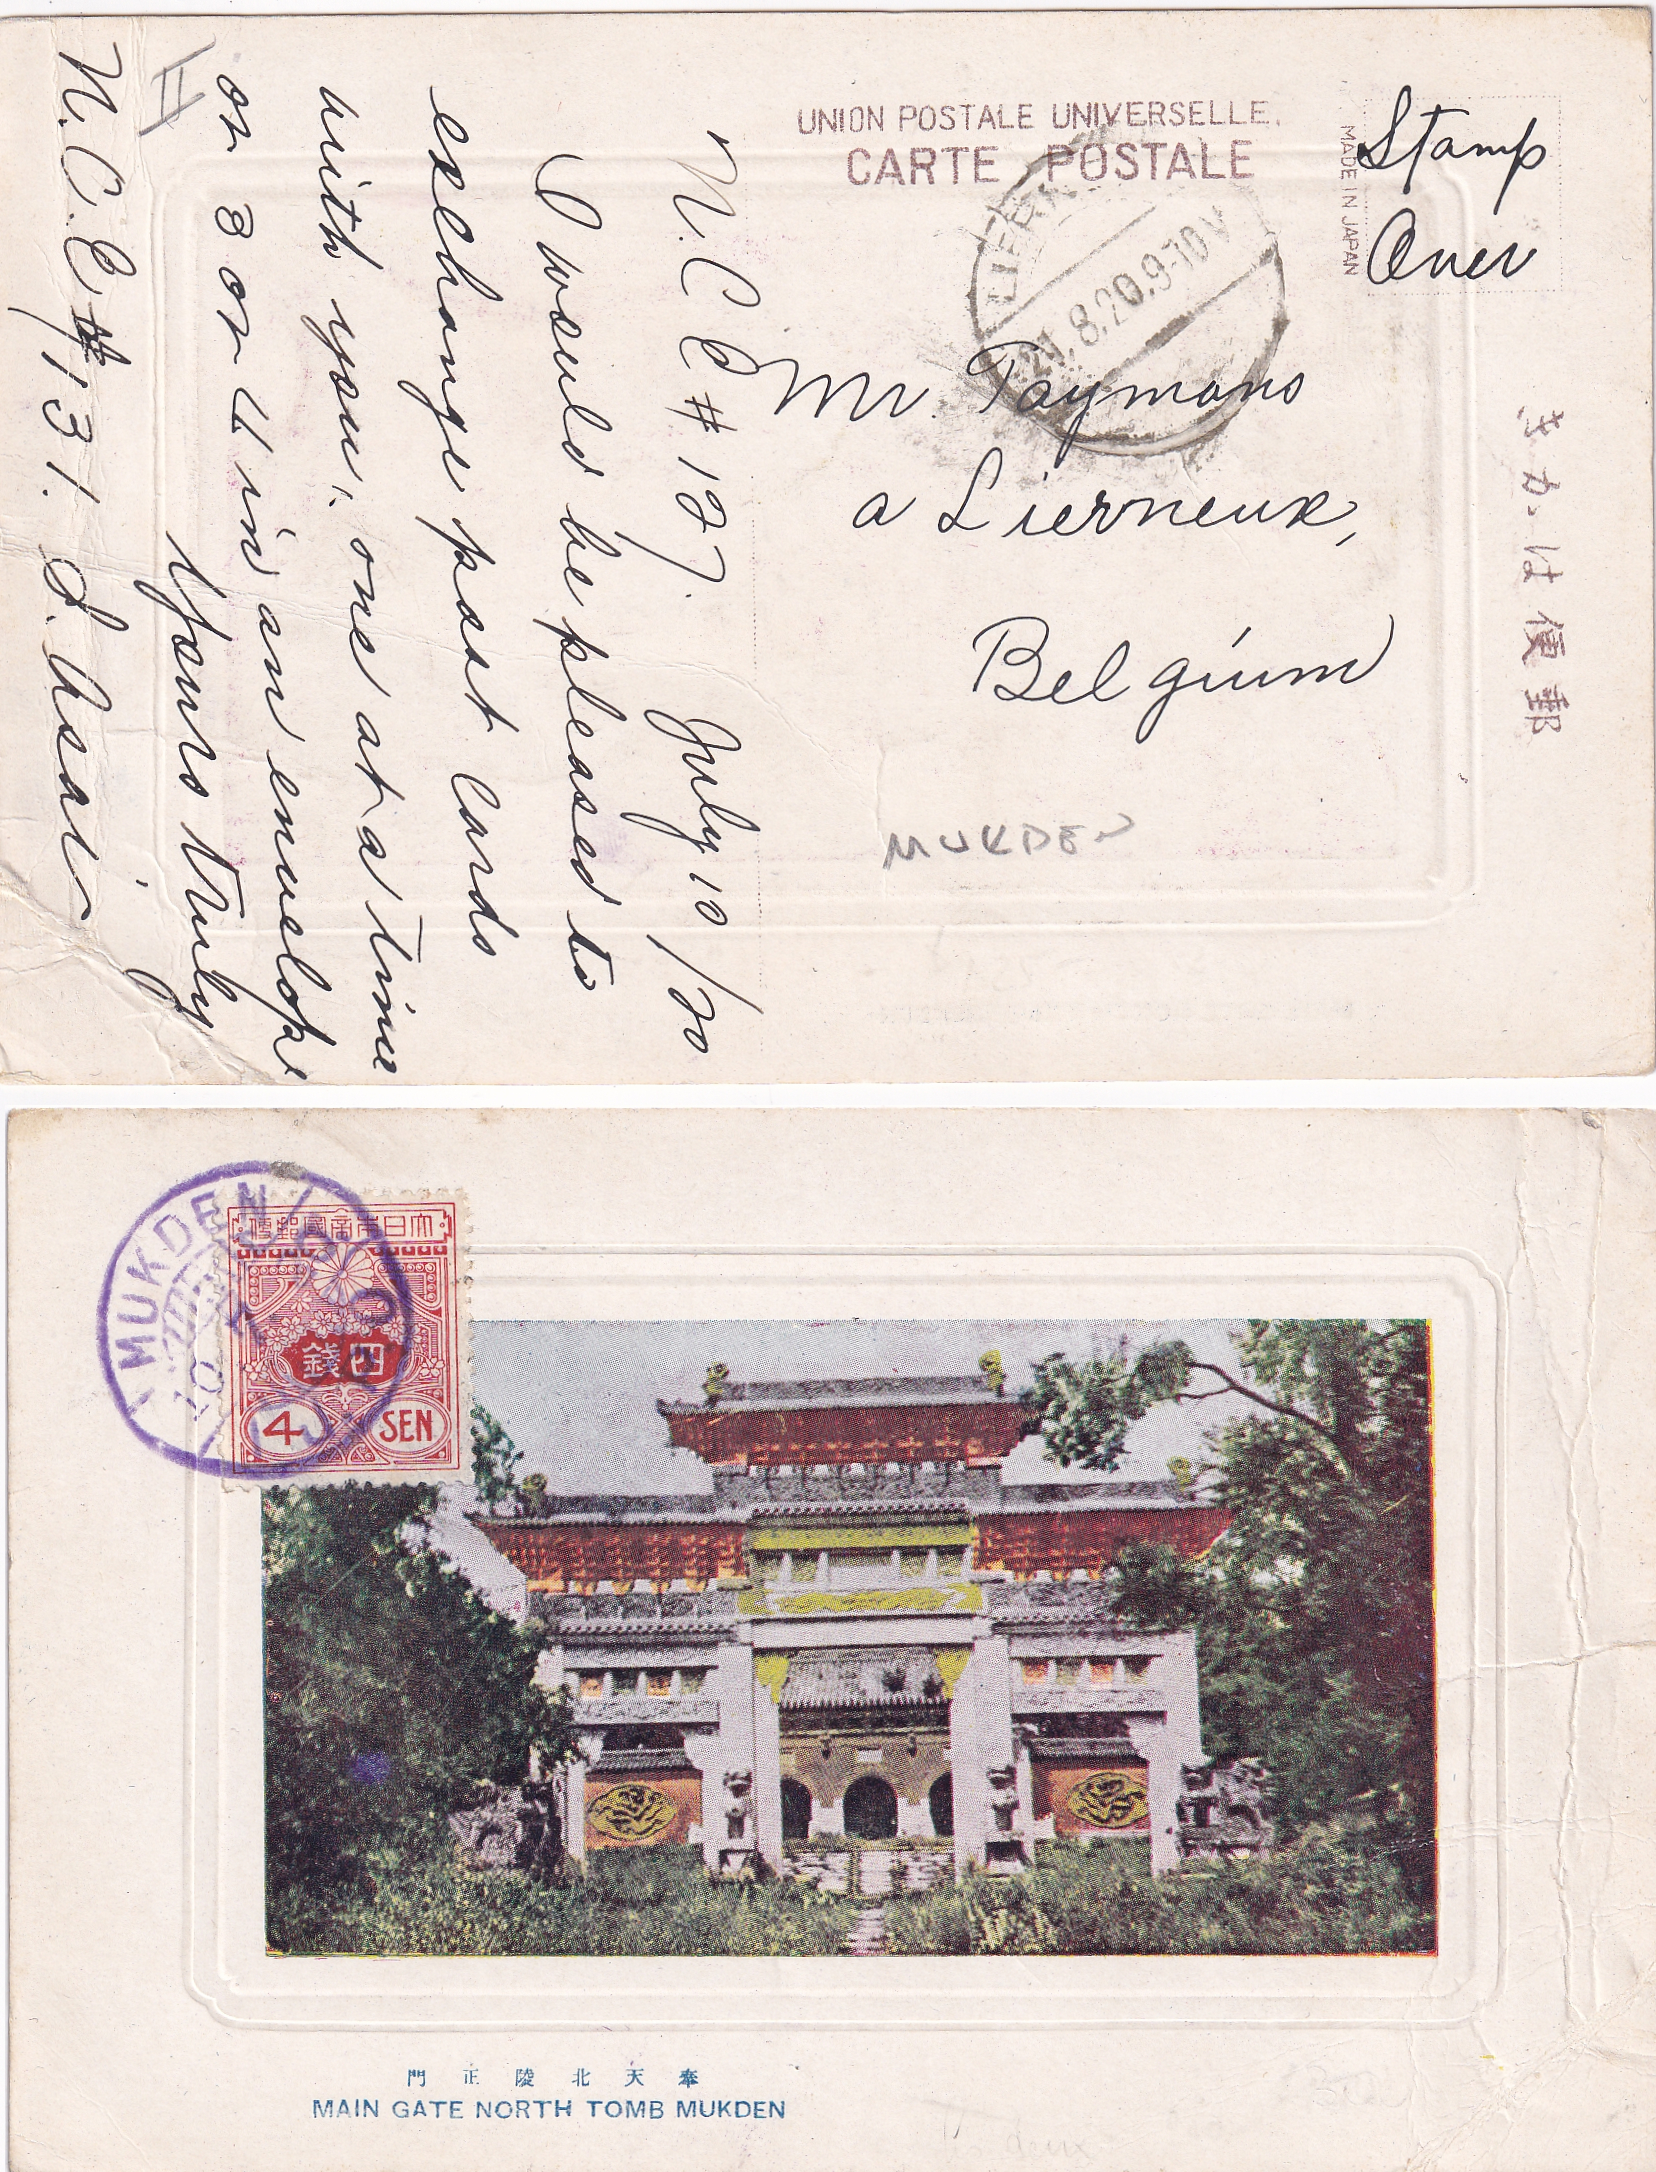 UNION POSTALE UNIVERSELLE.
CARTE POSTALE
MADE IN JAPAN
Stamp
Over
21.8.20.9-10V
Mr. Taymans
a Lierneux,
Belgium
きかは便郵
MUKDEN
N. C. E # 127. July 10/20
I would be pleased to
exchange post cards
with you, one at a time
or 3 or 4 in an envelope
Yours truly
N. C. E # 131. S. Asai
MUKDEN
便郵國帝本日大
錢四
4 SEN
門正陵北天奉
MAIN GATE NORTH TOMB MUKDEN